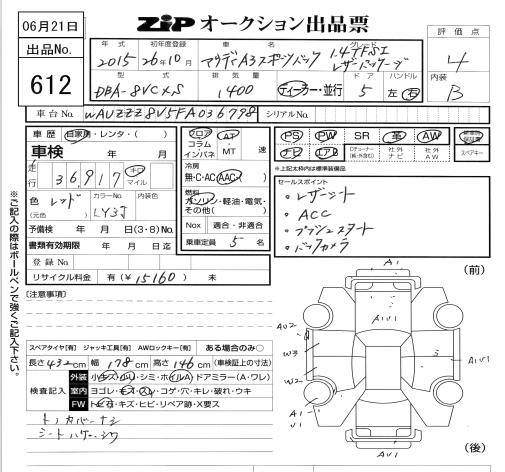 06月21日
ZIP オークション出品票
出品No.
612
評価点
4
内装
B
年式 初年度登録 車名 グレード
2015 26年10月 アウディA3スポーツバック 1.4TFSI レザーパッケージ
型式 排気量 ドア ハンドル
DBA-8VCXS 1400 ディーラー・並行 5 左・右
車台No. WAUZZZ8V5FA036798 シリアルNo.
車歴 自家用・レンタ・( )
車検
走行 36,917 キロ マイル
色 レッド カラーNo. LY3J 内装色
(元色)
予備検 年 月 日(3・8)No.
書類有効期限 年 月 日迄
登録No
リサイクル料金 有(¥15160) 未
フロア AT 速
コラム ・
インパネ MT
冷房
無・C・AC・AAC
燃料
ガソリン・軽油・電気・
その他( )
Nox 適合・非適合
乗車定員 5 名
PS PW SR 革 AW 新車時保証書
ナビ エアB TVチューナー 社外ナビ 社外AW スペアキー
*上記太枠内は標準装備品
セールスポイント
・レザーシート
・ACC
・プッシュスタート
・バックカメラ
※ご記入の際はボールペンで強くご記入下さい。
[注意事項]
スペアタイヤ[有] ジャッキ工具[有] AWロックキー[有] ある場合のみ○
長さ 432 cm 幅 178 cm 高さ 146 cm (車検証上の寸法)
検査記入
外装 小キズ・小ハリ・シミ・ホイルA・ドアミラー(A・ワレ)
室内 ヨゴレ・キズ・スレ・コゲ・穴・キレ・破れ・ウキ
FW トビ石・キズ・ヒビ・リペア跡・X要ス
トノカバーナシ
シートハゲ・シワ
(前)
A1
A1V1
AU2
W3
W2
A1V1
A1
V1
A1
(後)